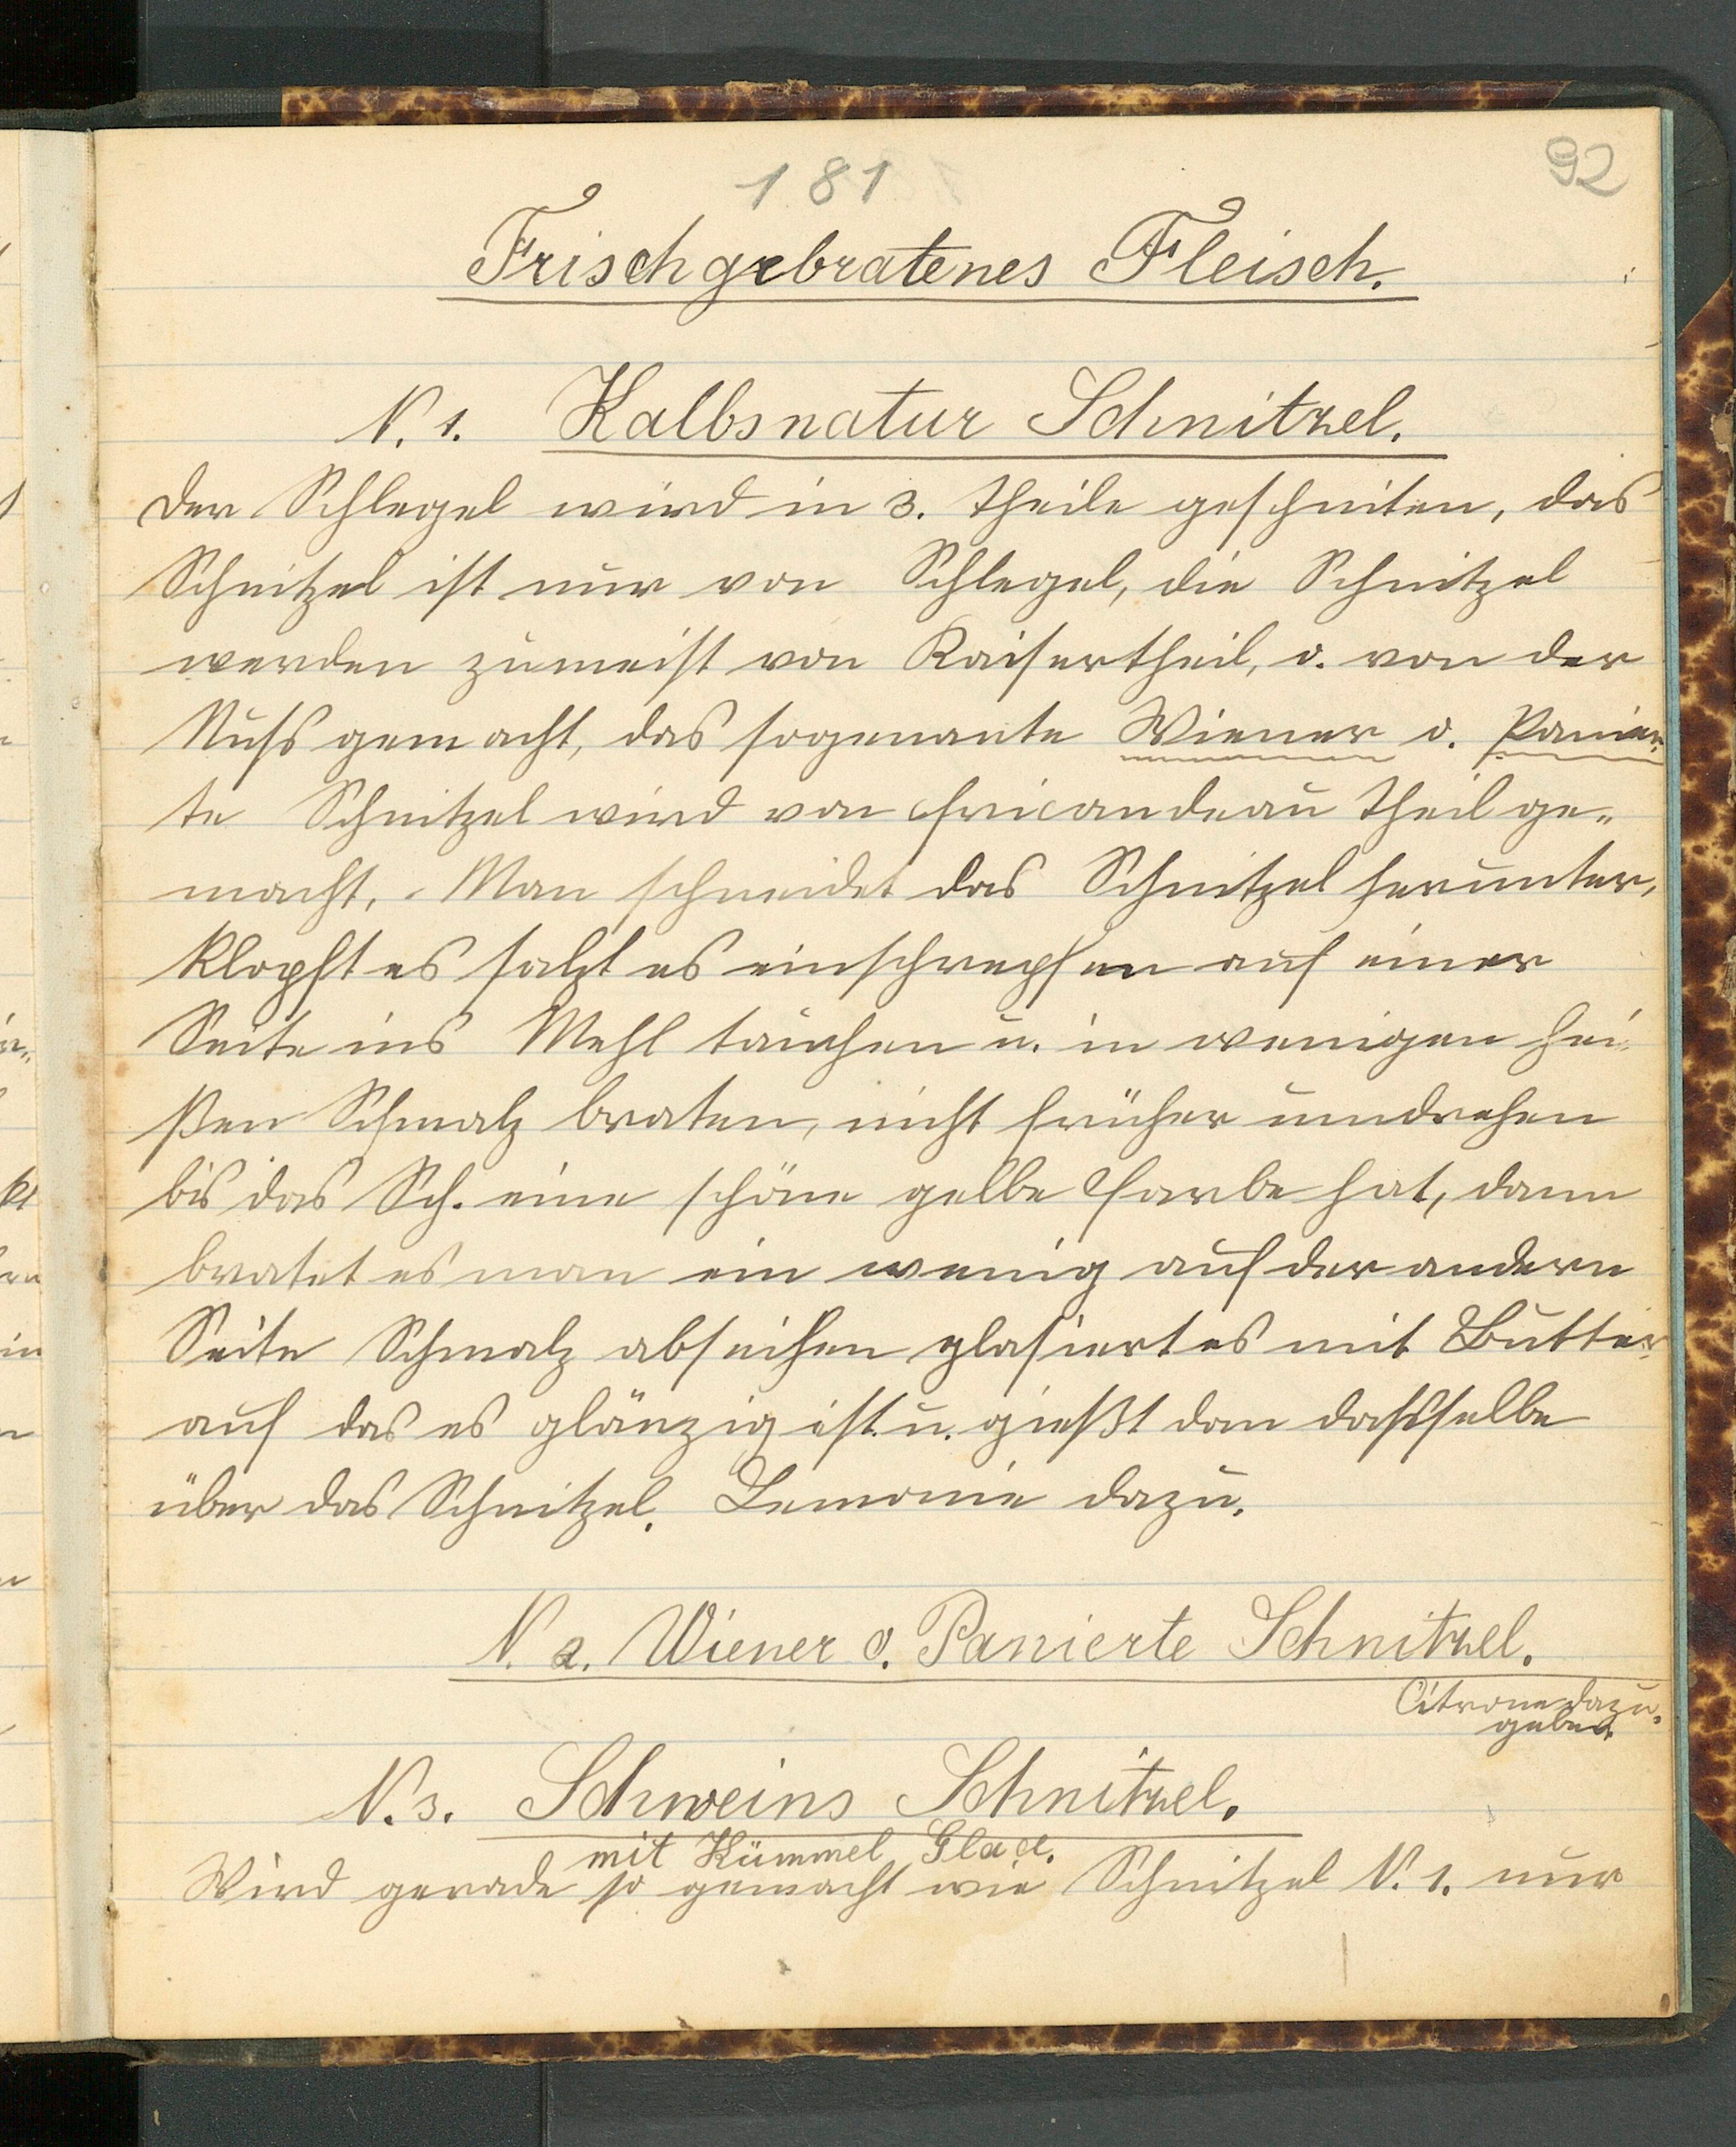 181
92
Frischgebratenes Fleisch.
N. 1. Kalbsnatur Schnitzel.
Der Schlegel wird in 3. Theile geschniten, das
Schnitzel ist nur von Schlegel, die Schnitzel
werden zumeist von Kaisertheil, o. von der
Nuss gemacht, das sogenante Wiener o. Panier-
te Schnitzel wird von Fricandeau Theil ge-
macht,. Man schneidet das Schnitzel herunter,
klopft es salzt es einschrepfen auf einer
Seite ins Mehl tauchen u. in wenigen hei-
ßen Schmalz braten, nicht früher umdrehen
bis das Sch. eine schöne gelbe Farbe hat, dann
bratet es man ein wenig auf der andern
Seite Schmalz abseihen glasiert es mit Butter
auf das es glänzig ist u. gießt dan dasselbe
über das Schnitzel. Lemonie dazu.
N. 2. Wiener o. Panierte Schnitzel.
Citrone dazu.
geben.
N. 3. Schweins Schnitzel.
mit Kümmel
Wird gerade so gemacht wie Schnitzel N. 1. nur